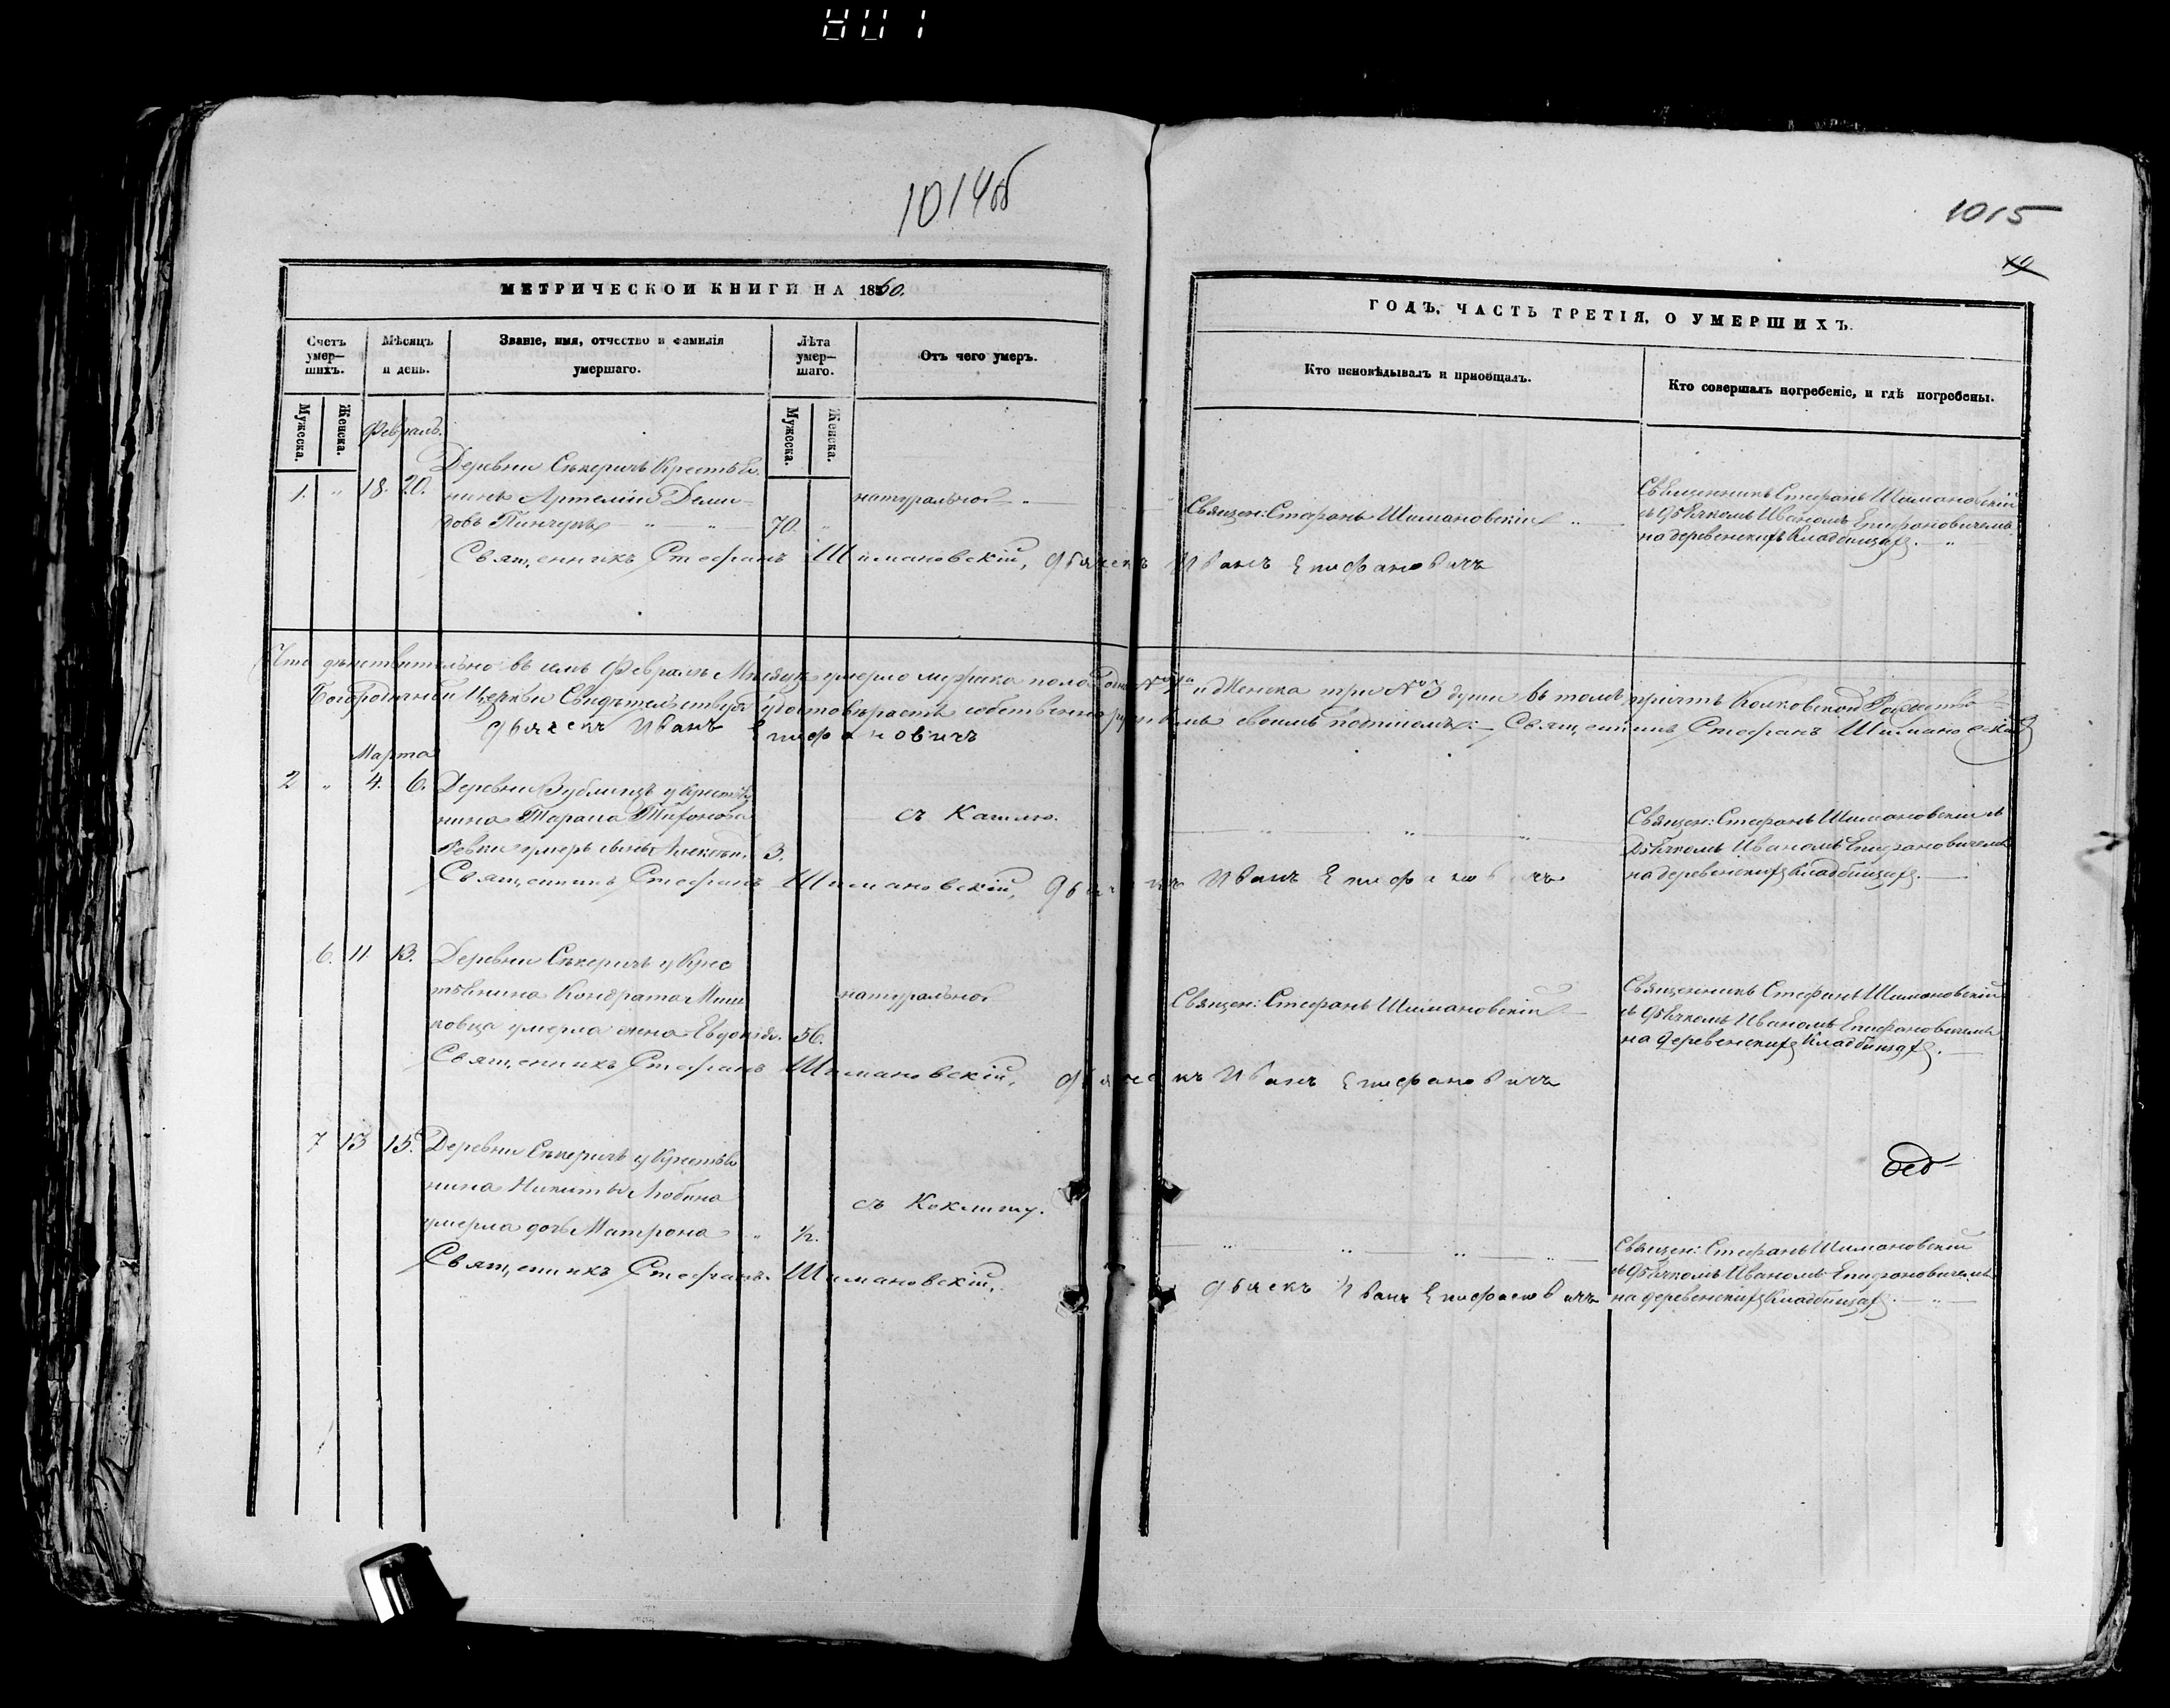 1014об
1015
МЕТРИЧЕСКОЙ КНИГИ НА 1860.
ГОДЪ, ЧАСТЬ ТРЕТІЯ, О УМЕРШИХЪ.
Счетъ умер–шихъ.
Мѣсяцъ и день.
Званіе, имя, отчество и фамилія умершаго.
Лѣта умер–шаго.
Отъ чего умеръ.
Кто исповѣдывалъ и пріобщалъ.
Кто совершалъ погребеніе, и гдѣ погребены.
Мужеска.
Женска.
Мужеска.
Женска.
Февраль.
Деревни Сѣкеричъ Крестья
1. " 18. 20. нинъ Артемій Деми– натуральной "
довъ Пинчукъ " " 70. "
Священ: Стефанъ Шимановскій "
Священникъ Стефанъ Шимановскій
съ Дьячкомъ Иваномъ Епифановичемъ
на деревенскихъ Кладбищахъ. "
Священникъ Стефанъ Шимановскій, Дьячекъ Иванъ Епифановичъ
Что дѣйствительно въ семъ Февралѣ Мѣсяцѣ умерло мужеска пола и Женска три № 3 души въ томъ причтъ Колковской Рождество–
Богородичной Церкви Свидѣтельствуетъ собственноручнымъ своимъ подписомъ: Священникъ Стефанъ Шимановскій
Дьячекъ Иванъ Епифановичъ
Марта
2 " 4. 6. Деревни Зубжинцъ у Крестья
нина Тараса с Кашлю.
умеръ сынъ 3.
" " "
Священ: Стефанъ Шимановскій съ
Дьячкомъ Иваномъ Епифановичемъ
на деревенскихъ Кладбищахъ.
Священникъ Стефанъ Шимановскій, Дьячекъ Иванъ Епифановичъ
6. 11. 13. Деревни Сѣкеричъ у Крес
тьянина Кондрата Миш натуральной
ковца умерла жена Евдокія. 56.
Священ: Стефанъ Шимановскій
Священникъ Стефанъ Шимановскій
съ Дьячкомъ Иваномъ Епифановичемъ
на деревенскихъ Кладбищахъ.
Священникъ Стефанъ Шимановскій, Дьячекъ Иванъ Епифановичъ
7 13 15. Деревни Сѣкеричъ у Крестья
нина Никиты Любина съ Коклишу.
умерла дочь Матрона " 1/2.
" " " "
Священ: Стефанъ Шимановскій
съ Дьячкомъ Иваномъ Епифановичемъ
на деревенскихъ Кладбищахъ. "
Священникъ Стефанъ Шимановскій, Дьячекъ Иванъ Епифановичъ